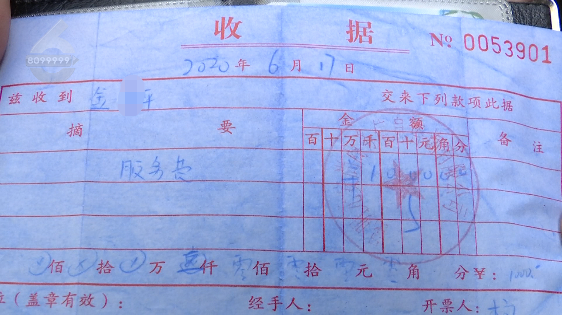 收据 № 0053901
80999997
2020年6月17日
兹收到 金 平 交来下列款项此据
摘要 金额 备注
百十万千百十元角分
服务费 100000
佰 拾 万 壹仟 零佰 零拾 零元 零角 分 ¥: 1000
位(盖章有效): 经手人: 开票人: